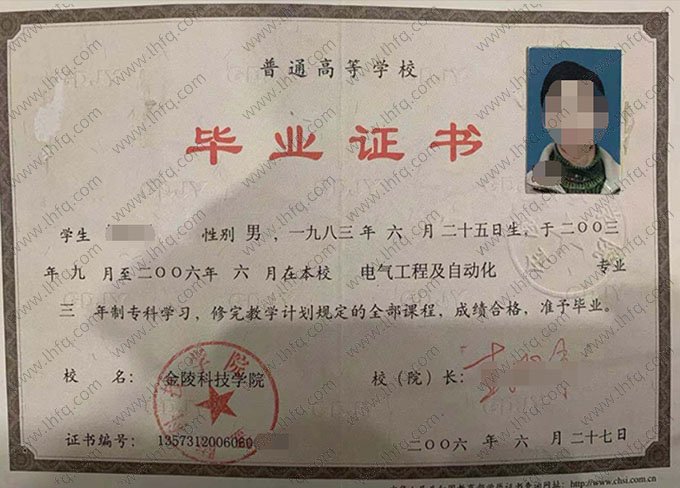 普通高等学校
毕业证书
学生 性别 男，一九八三年 六 月二十五日生，于二〇〇三
年 九 月至二〇〇六年 六 月在本校 电气工程及自动化 专业
三 年制专科学习，修完教学计划规定的全部课程，成绩合格，准予毕业。
校 名： 金陵科技学院 校（院）长：
证书编号： 1357312006060
二〇〇六年 六 月二十七日
http://www.chsi.com.cn
www.lhfq.com